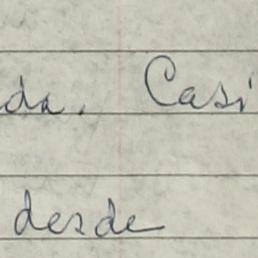 da. Casi
desde